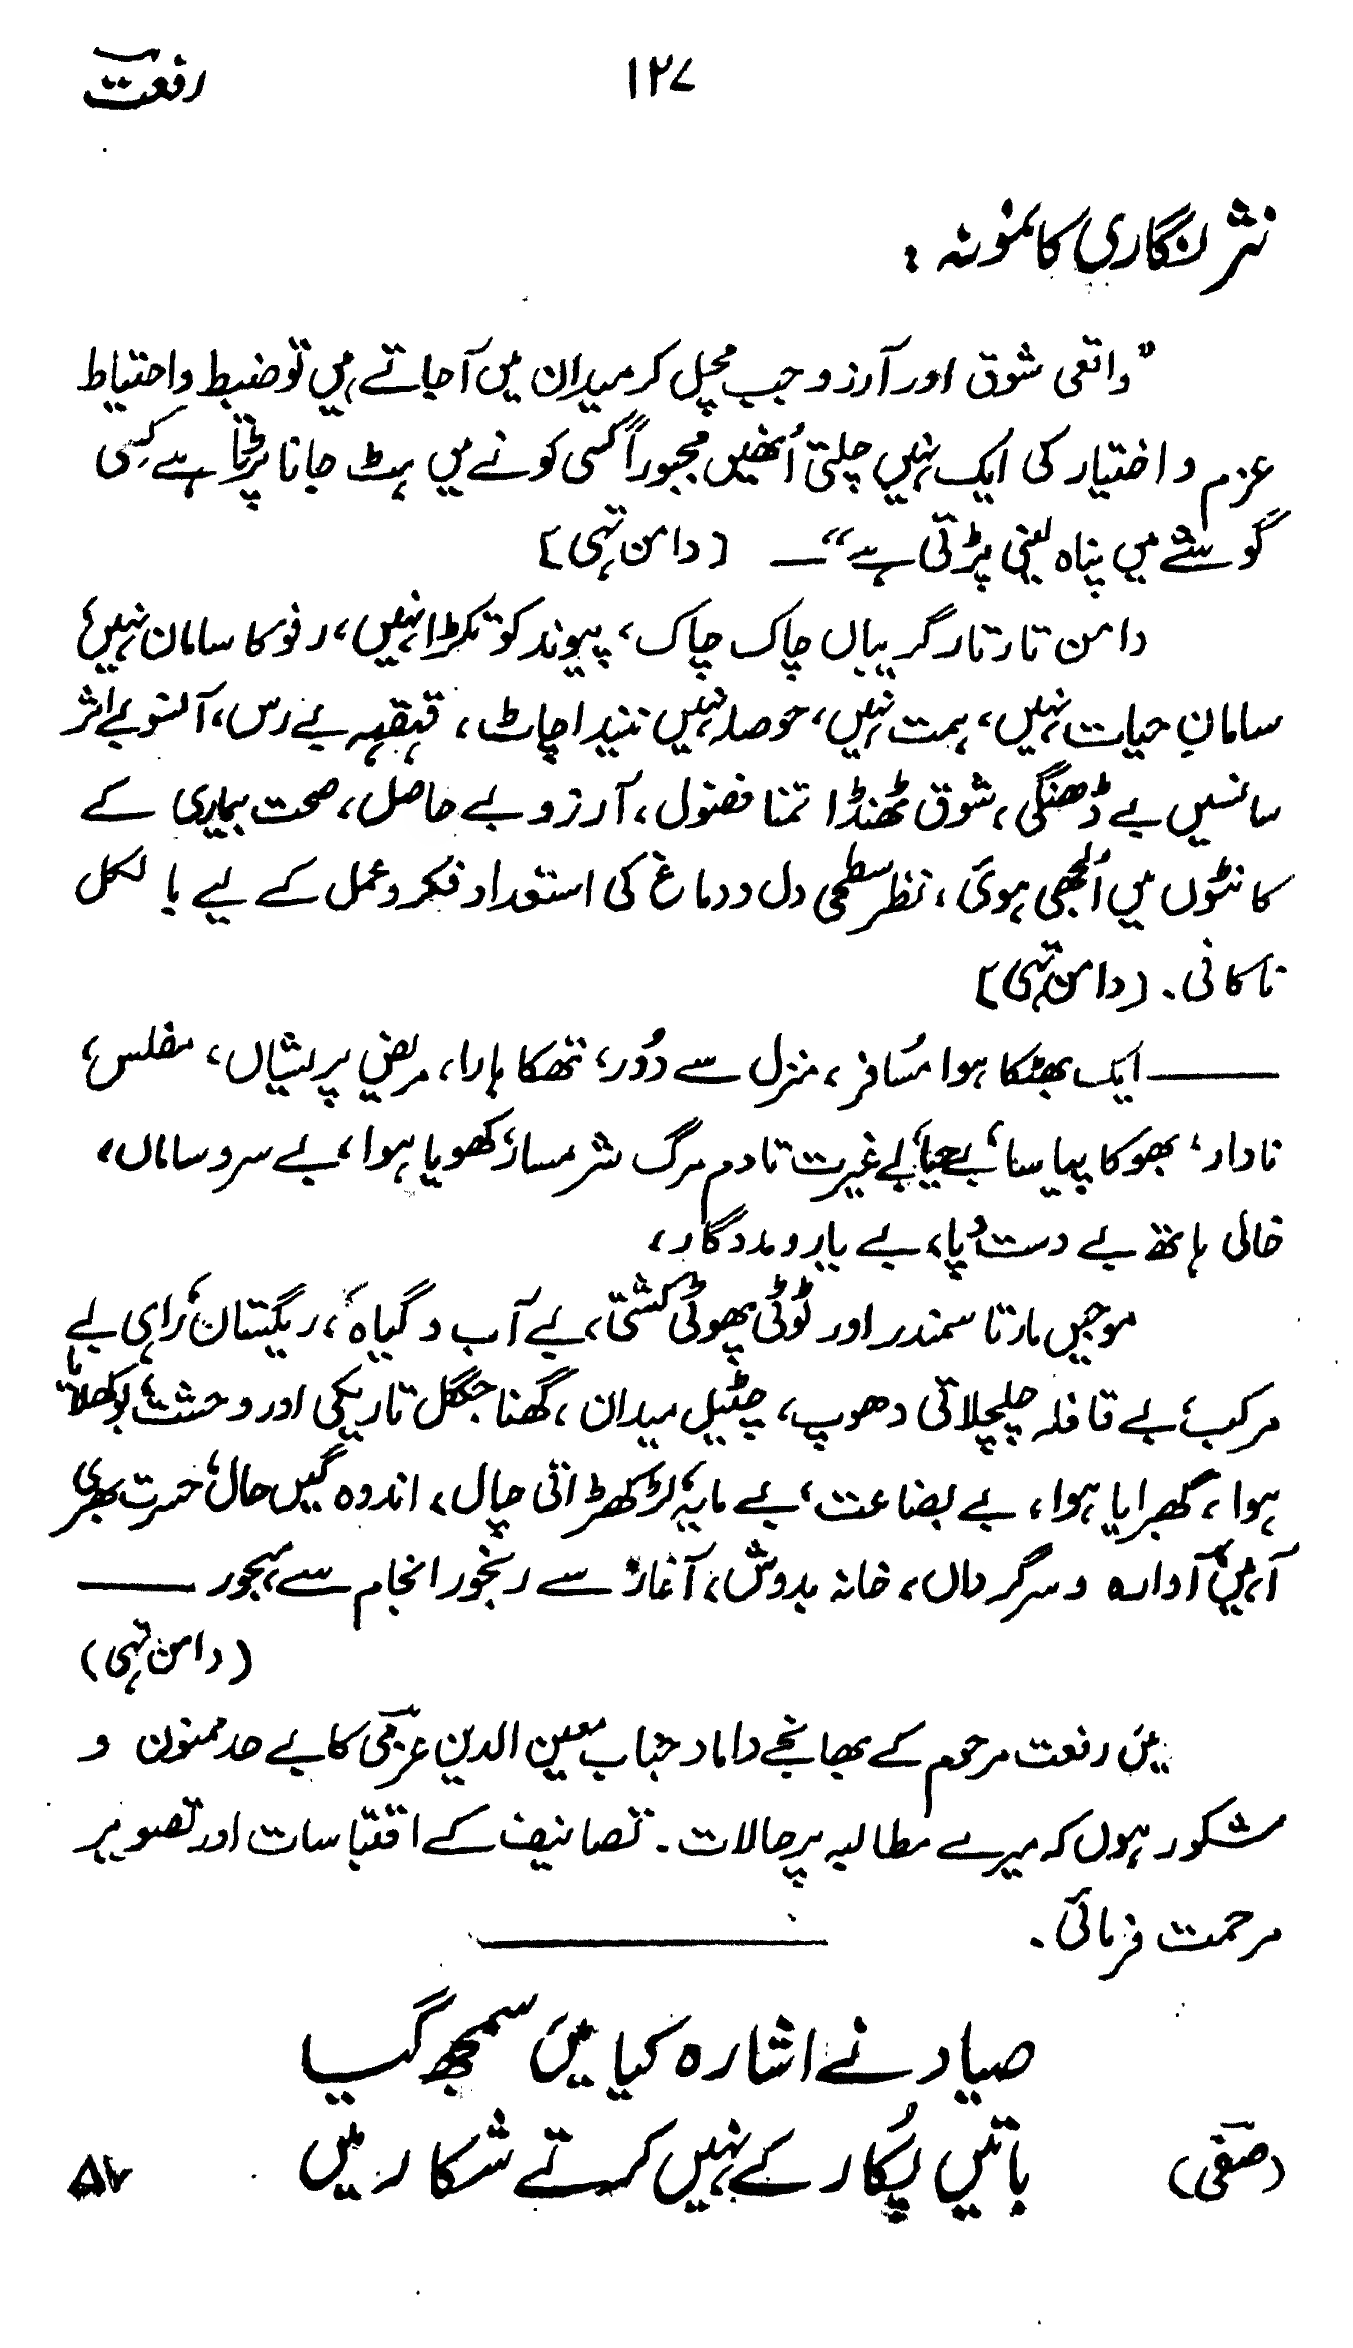 رفعتؔ ۱۲۷
نثر نگاری کا نمونہ :
"واقعی شوق اور آرزو جب مچل کر میدان میں آجاتے ہیں تو ضبط و احتیاط
عزم و اختیار کی ایک نہیں چلتی اُنھیں مجبوراً کسی کونے میں ہٹ جانا پڑتا ہے کِسی
گوشے میں پناہ لینی پڑتی ہے" ــ [دامن تہی]
دامن تار تار گریباں چاک چاک، پیوند کو ٹکڑا نہیں، رفو کا سامان نہیں،
سامانِ حیات نہیں، ہمت نہیں، حوصلہ نہیں نیند اچاٹ، قہقہہ بے رس، آنسو بے اثر
سانسیں بے ڈھنگی، شوق ٹھنڈا تمنا فضول، آرزو بے حاصل، صحت بیماری کے
کانٹوں میں اُلجھی ہوئی، نظر سطحی دل و دماغ کی استعداد فکر و عمل کے لیے بالکل
ناکافی۔ [دامن تہی]
ــــــ ایک بھٹکا ہوا مُسافر، منزل سے دُور، تھکا ہارا، مریض پریشاں، مفلس،
نادار، بھوکا پیاسا، بےحیا، بے غیرت تادم مرگ شرمسار، کھویا ہوا، بے سر و ساماں،
خالی ہاتھ بے دست و پا، بے یار و مددگار،
موجیں مارتا سمندر اور ٹوٹی پھوٹی کشتی، بے آب و گیاہ، ریگستان، راہی بے
مرکب، بے قافلہ چلچلاتی دھوپ، چٹیل میدان، گھنا جنگل تاریکی اور وحشت، بوکھلایا
ہوا، گھبرایا ہوا، بے بضاعت، بے مایہ، لڑکھڑاتی چال، اندوہ گیں حال، حسرت بھری
آہیں، آوارہ و سرگرداں، خانہ بدوش، آغاز سے رنجور انجام سے مہجور ــــــ
(دامن تہی)
میں رفعت مرحوم کے بھانجے داماد جناب معین الدین عزمیؔ کا بے حد ممنون و
مشکور ہوں کہ میرے مطالبہ پر حالات۔ تصانیف کے اقتباسات اور تصویر
مرحمت فرمائی۔
صیاد نے اشارہ کیا میں سمجھ گیا
(صفیؔ) باتیں پُکار کے نہیں کرتے شکار میں